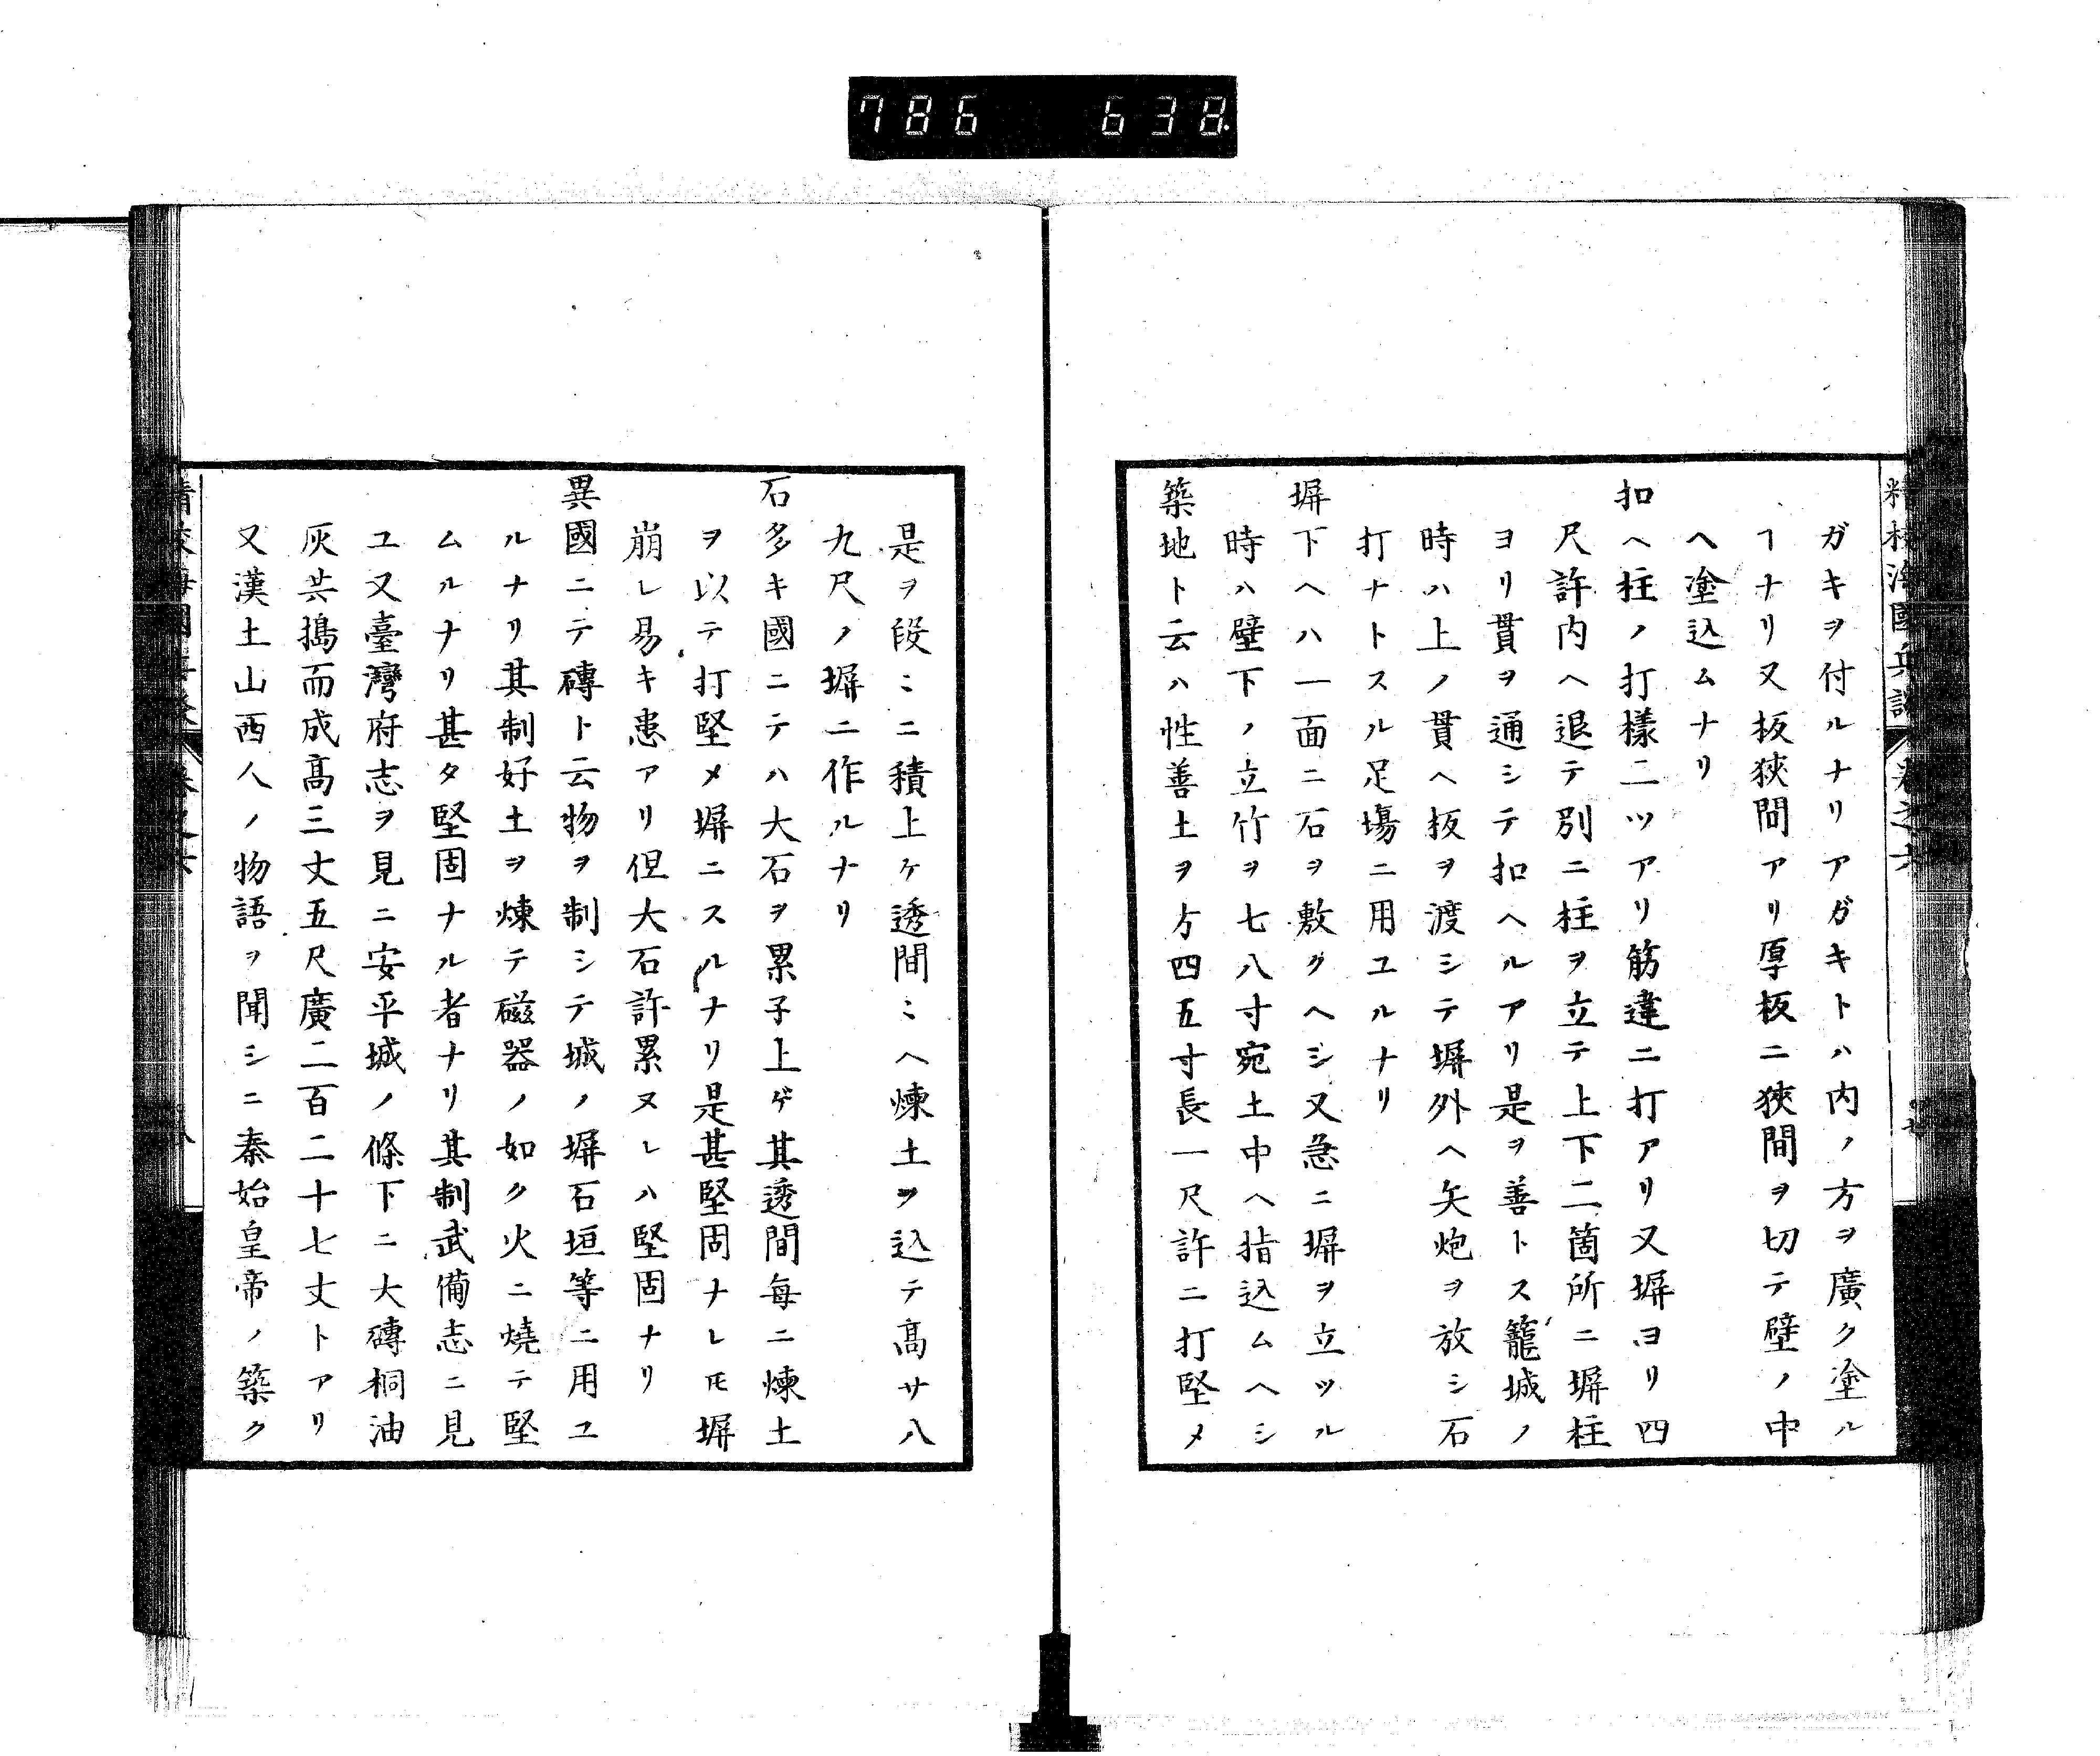 786 638
精校海國兵談 卷之六
ガキヲ付ルナリアガキトハ内ノ方ヲ廣ク塗ル
ヿナリ又板狹間アリ厚板ニ狹間ヲ切テ壁ノ中
ヘ塗込ムナリ
扣ヘ柱ノ打樣二ツアリ筋違ニ打アリ又塀ヨリ四
尺許内ヘ退テ別ニ柱ヲ立テ上下二箇所ニ塀柱
ヨリ貫ヲ通シテ扣ヘルアリ是ヲ善トス籠城ノ
時ハ上ノ貫ヘ板ヲ渡シテ塀外ヘ矢炮ヲ放シ石
打ナトスル足塲ニ用ユルナリ
塀下ヘハ一面ニ石ヲ敷グヘシ又急ニ塀ヲ立ツル
時ハ壁下ノ立竹ヲ七八寸宛土中ヘ指込ムヘシ
築地ト云ハ性善土ヲ方四五寸長一尺許ニ打堅メ
是ヲ段〻ニ積上ケ透間〻ヘ煉土ヲ込テ高サ八
九尺ノ塀ニ作ルナリ
石多キ國ニテハ大石ヲ累子上ゲ其透間毎ニ煉土
ヲ以テ打堅メ塀ニスルナリ是甚堅固ナレ𪜈塀
崩レ易キ患アリ但大石許累ヌレハ堅固ナリ
異國ニテ磚ト云物ヲ制シテ城ノ塀石垣等ニ用ユ
ルナリ其制好土ヲ煉テ磁器ノ如ク火ニ燒テ堅
ムルナリ甚タ堅固ナル者ナリ其制武備志ニ見
ユ又臺灣府志ヲ見ニ安平城ノ條下ニ大磚桐油
灰共搗而成高三丈五尺廣二百二十七丈トアリ
又漢土山西人ノ物語ヲ聞シニ秦始皇帝ノ築ク